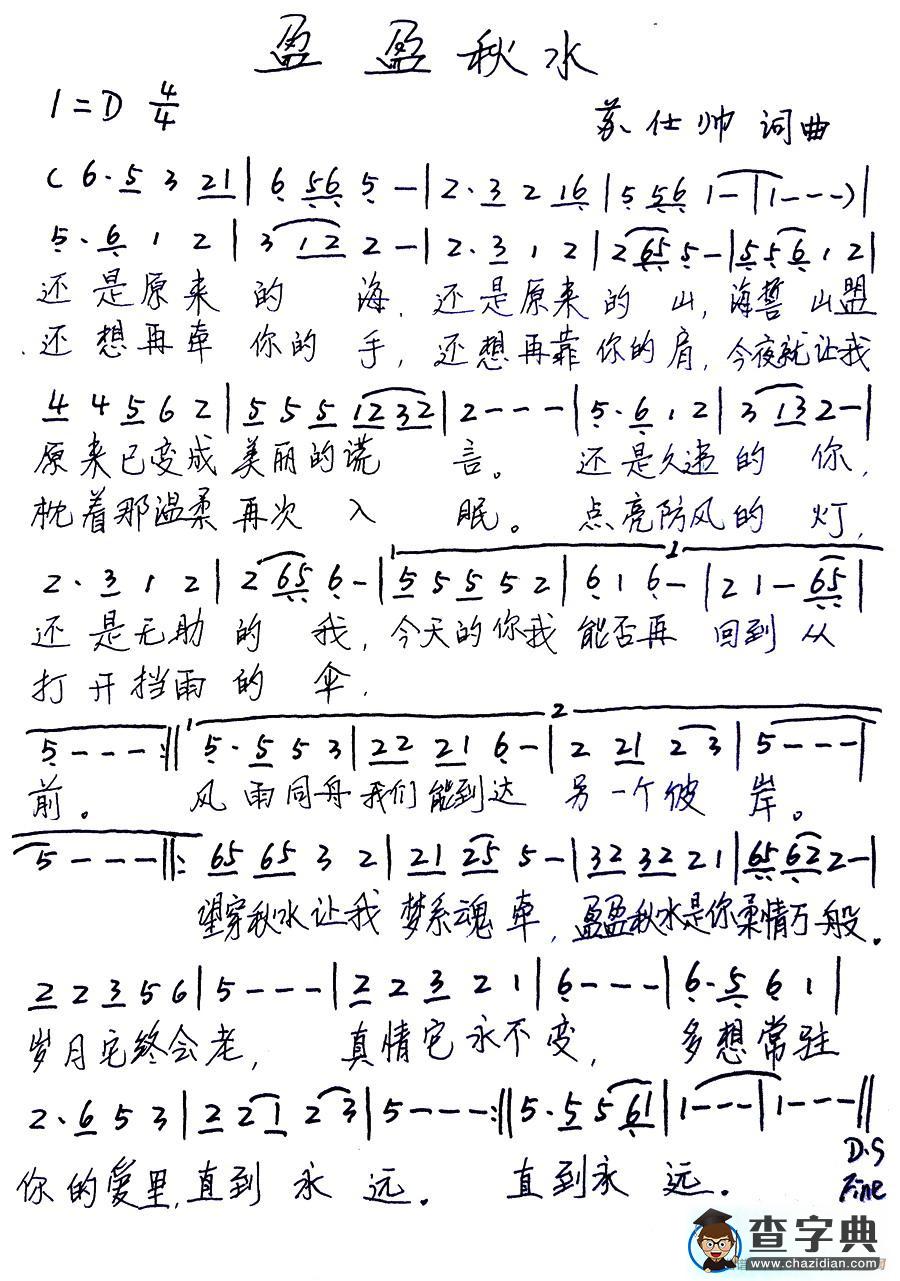 盈盈秋水
1=D 4/4
苏仕帅 词曲
( 6. 5 3 21 | 6 56 5 - | 2. 3 2 16 | 5 56 1 - | 1 - - - ) |
5. 6 1 2 | 3 12 2 - | 2. 3 1 2 | 2 65 5 - | 5 5 6 1 2 |
还是原来的 海, 还是原来的山, 海誓山盟
还想再牵你的 手, 还想再靠你的肩, 今夜就让我
4 4 5 6 2 | 5 5 5 1232 | 2 - - - | 5. 6 1 2 | 3 13 2 - |
原来已变成美丽的谎 言。 还是久违的 你,
枕着那温柔再次入 眠。 点亮防风的 灯,
1 2
2. 3 1 2 | 2 65 6 - | 5 5 5 5 2 | 6 1 6 - | 2 1 - 65 |
还是无助的 我, 今天的你我能否再 回到从
打开挡雨的 伞,
1 2
5 - - - :|| 5. 5 5 3 | 22 21 6 - | 2 21 2 3 | 5 - - - |
前。 风雨同舟我们能到达 另一个彼 岸。
5 - - - ||: 65 65 3 2 | 21 25 5 - | 32 32 2 1 | 65 62 2 - |
望穿秋水让我 梦系魂牵, 盈盈秋水是你柔情万般。
2 2 3 5 6 | 5 - - - | 2 2 3 2 1 | 6 - - - | 6. 5 6 1 |
岁月它终会老, 真情它永不变, 多想常驻
2. 6 5 3 | 2 2 1 2 3 | 5 - - - :|| 5. 5 5 61 | 1 - - - | 1 - - - ||
D.S
你的爱里,直到永 远。 直到永 远。
Fine
查字典
www.chazidian.com